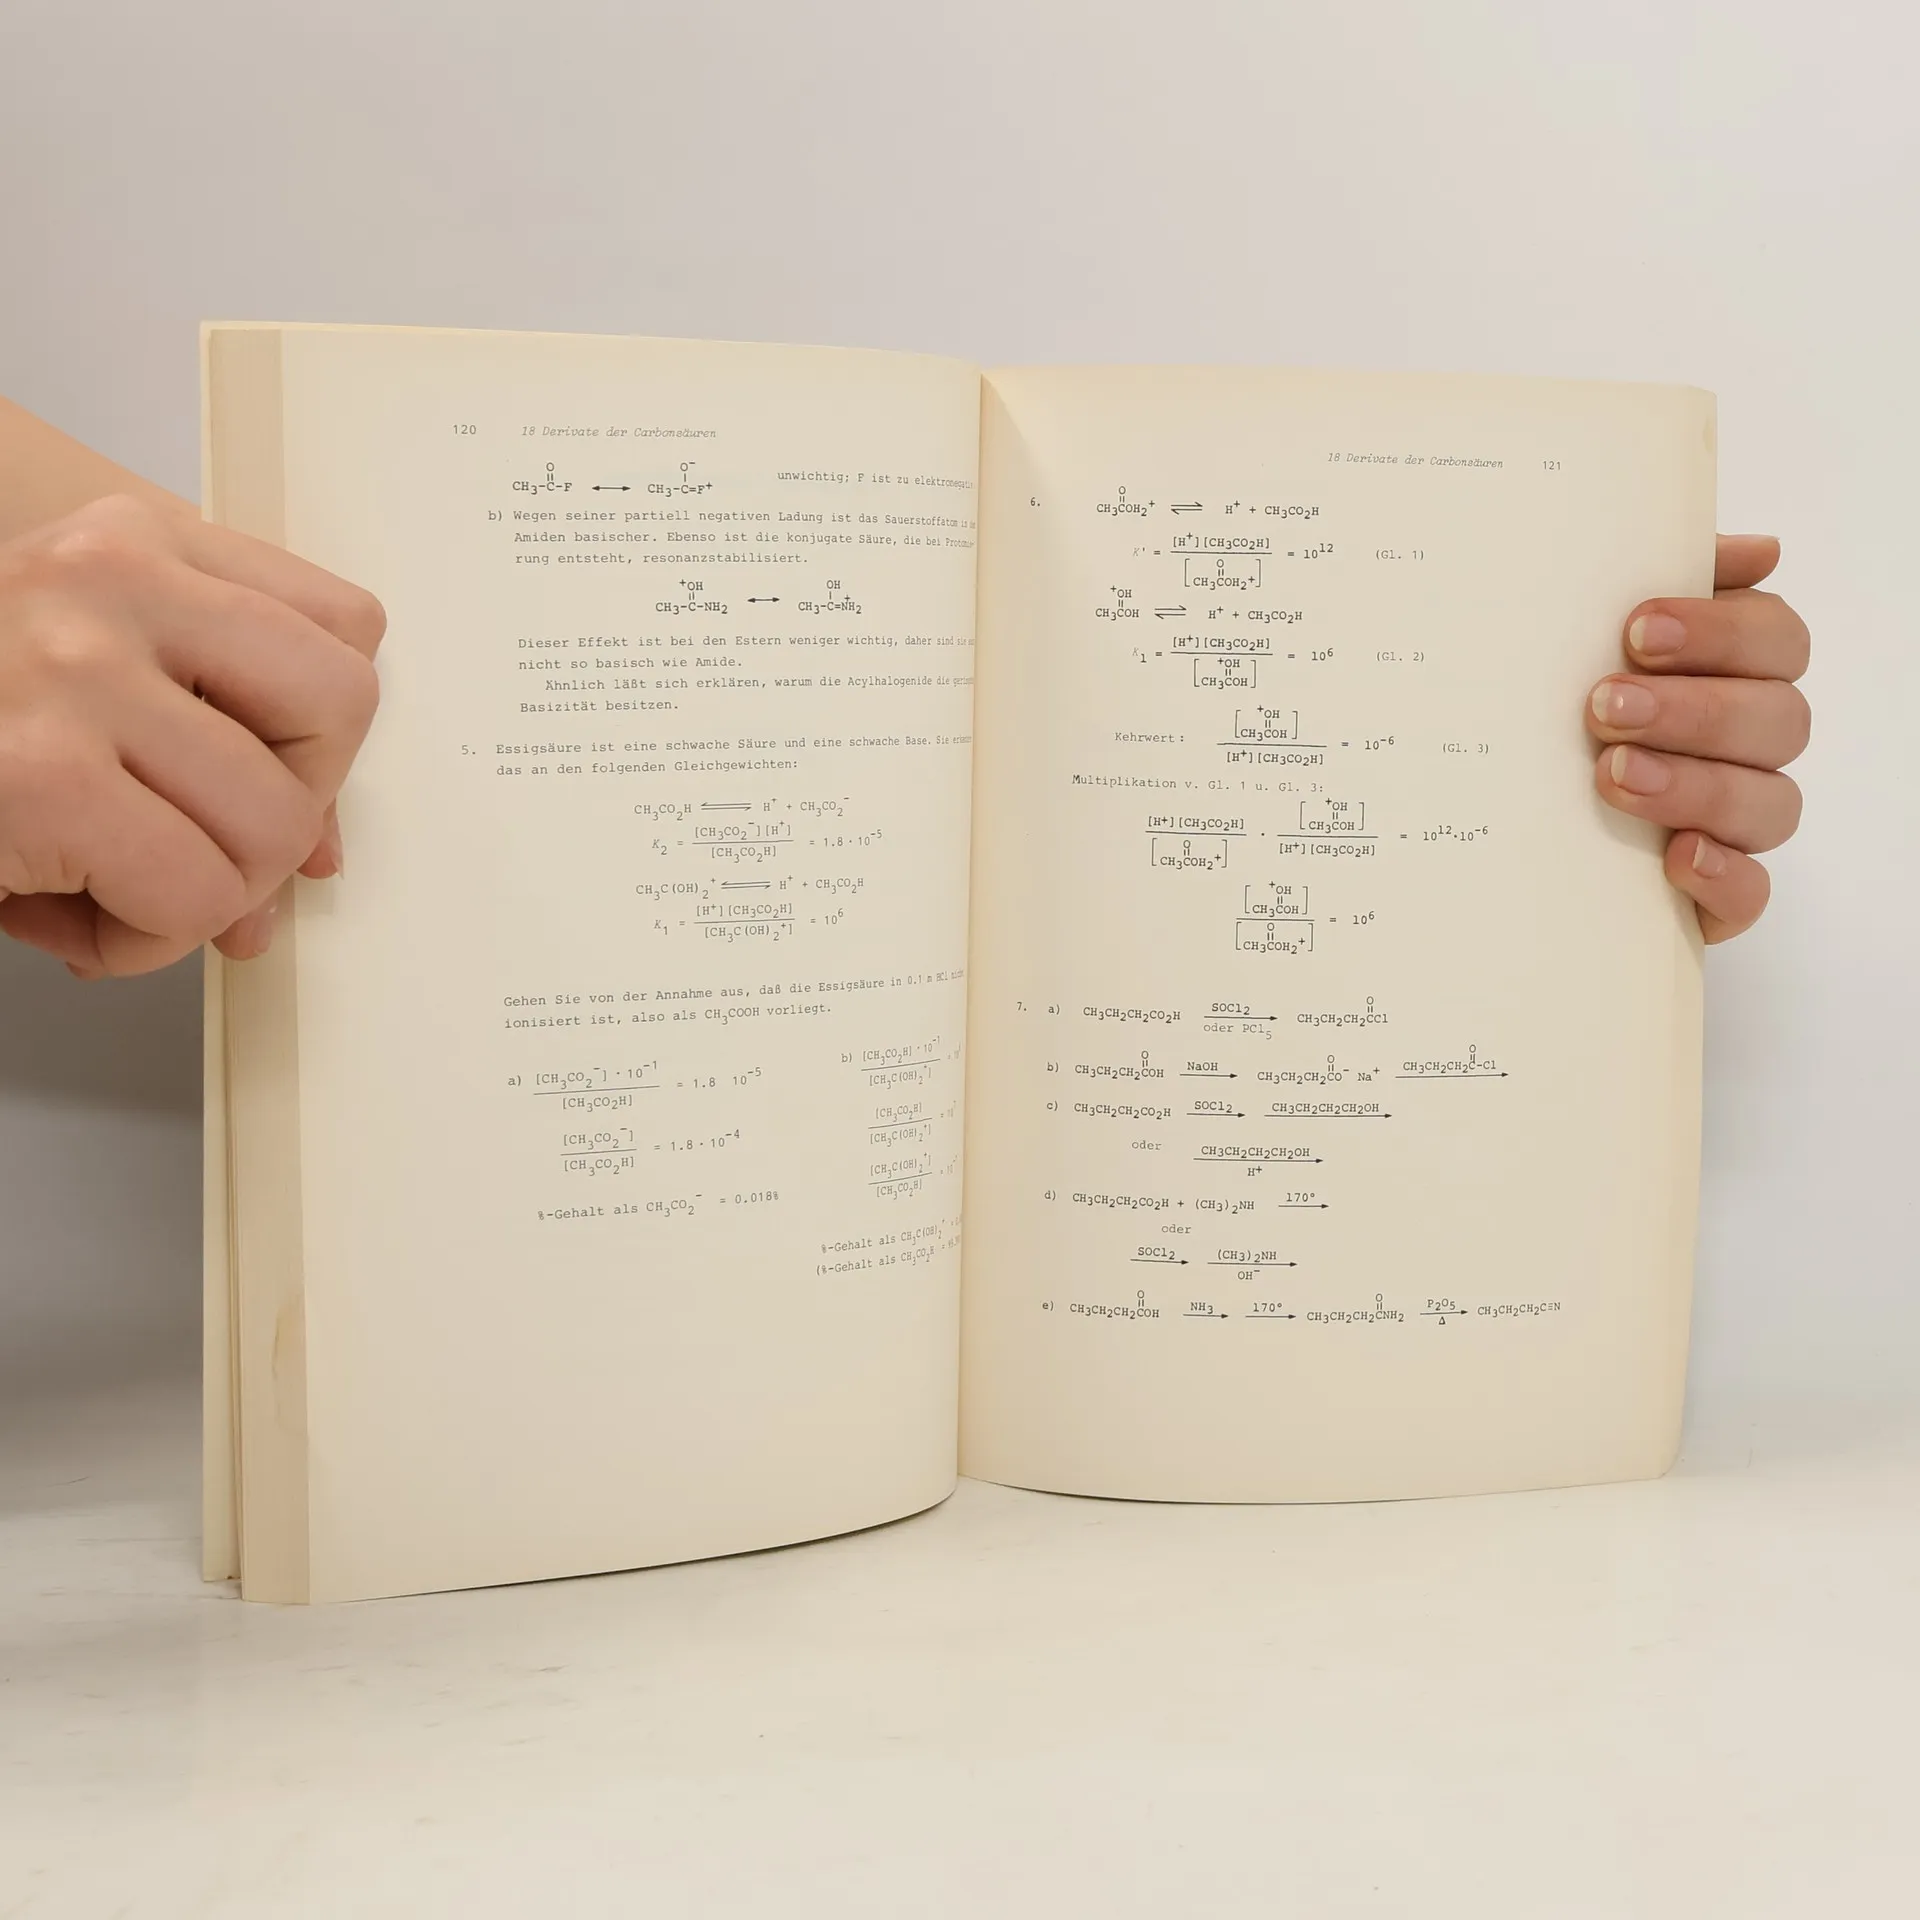 120 18 Derivate der Carbonsäuren
O O⁻
CH₃-C-F ⟷ CH₃-C=F⁺ unwichtig; F ist zu
b) Wegen seiner partiell negativen Ladung ist das Sauerstoffatom
Amiden basischer. Ebenso ist die konjugate Säure, die bei
rung entsteht, resonanzstabilisiert.
⁺OH OH
CH₃-C-NH₂ ⟷ CH₃-C=N⁺H₂
Dieser Effekt ist bei den Estern weniger wichtig, daher sind
nicht so basisch wie Amide.
Ähnlich läßt sich erklären, warum die Acylhalogenide die
Basizität besitzen.
5. Essigsäure ist eine schwache Säure und eine schwache Base. Sie
das an den folgenden Gleichgewichten:
CH₃CO₂H ⇌ H⁺ + CH₃CO₂⁻
K₂ = [CH₃CO₂⁻][H⁺] / [CH₃CO₂H] = 1.8 · 10⁻⁵
CH₃C(OH)₂⁺ ⇌ H⁺ + CH₃CO₂H
K₁ = [H⁺][CH₃CO₂H] / [CH₃C(OH)₂⁺] = 10⁶
Gehen Sie von der Annahme aus, daß die Essigsäure in 0.1 m HCl
ionisiert ist, also als CH₃COOH vorliegt.
a) [CH₃CO₂⁻] · 10⁻¹ / [CH₃CO₂H] = 1.8 10⁻⁵
[CH₃CO₂⁻] / [CH₃CO₂H] = 1.8 · 10⁻⁴
%-Gehalt als CH₃CO₂⁻ = 0.018%
b) [CH₃CO₂H] · 10⁻¹ / [CH₃C(OH)₂⁺] =
[CH₃CO₂H] / [CH₃C(OH)₂⁺] =
[CH₃C(OH)₂⁺] / [CH₃CO₂H] =
%-Gehalt als CH₃C(OH)₂⁺ =
(%-Gehalt als CH₃CO₂H =
18 Derivate der Carbonsäuren 121
6. O
CH₃COH₂⁺ ⇌ H⁺ + CH₃CO₂H
K' = [H⁺][CH₃CO₂H] / [CH₃C(=O)OH₂⁺] = 10¹² (Gl. 1)
⁺OH
CH₃COH ⇌ H⁺ + CH₃CO₂H
K₁ = [H⁺][CH₃CO₂H] / [CH₃C(=⁺OH)OH] = 10⁶ (Gl. 2)
Kehrwert: [CH₃C(=⁺OH)OH] / [H⁺][CH₃CO₂H] = 10⁻⁶ (Gl. 3)
Multiplikation v. Gl. 1 u. Gl. 3:
[H⁺][CH₃CO₂H] / [CH₃C(=O)OH₂⁺] · [CH₃C(=⁺OH)OH] / [H⁺][CH₃CO₂H] = 10¹²·10⁻⁶
[CH₃C(=⁺OH)OH] / [CH₃C(=O)OH₂⁺] = 10⁶
7. a) CH₃CH₂CH₂CO₂H SOCl₂ oder PCl₅ → CH₃CH₂CH₂C(=O)Cl
b) CH₃CH₂CH₂C(=O)OH NaOH → CH₃CH₂CH₂C(=O)O⁻ Na⁺ CH₃CH₂CH₂C(=O)-Cl →
c) CH₃CH₂CH₂CO₂H SOCl₂ → CH₃CH₂CH₂CH₂OH →
oder CH₃CH₂CH₂CH₂OH → H⁺
d) CH₃CH₂CH₂CO₂H + (CH₃)₂NH 170° →
oder
SOCl₂ → (CH₃)₂NH → OH⁻
e) CH₃CH₂CH₂C(=O)OH NH₃ → 170° → CH₃CH₂CH₂C(=O)NH₂ P₂O₅ → Δ CH₃CH₂CH₂C≡N